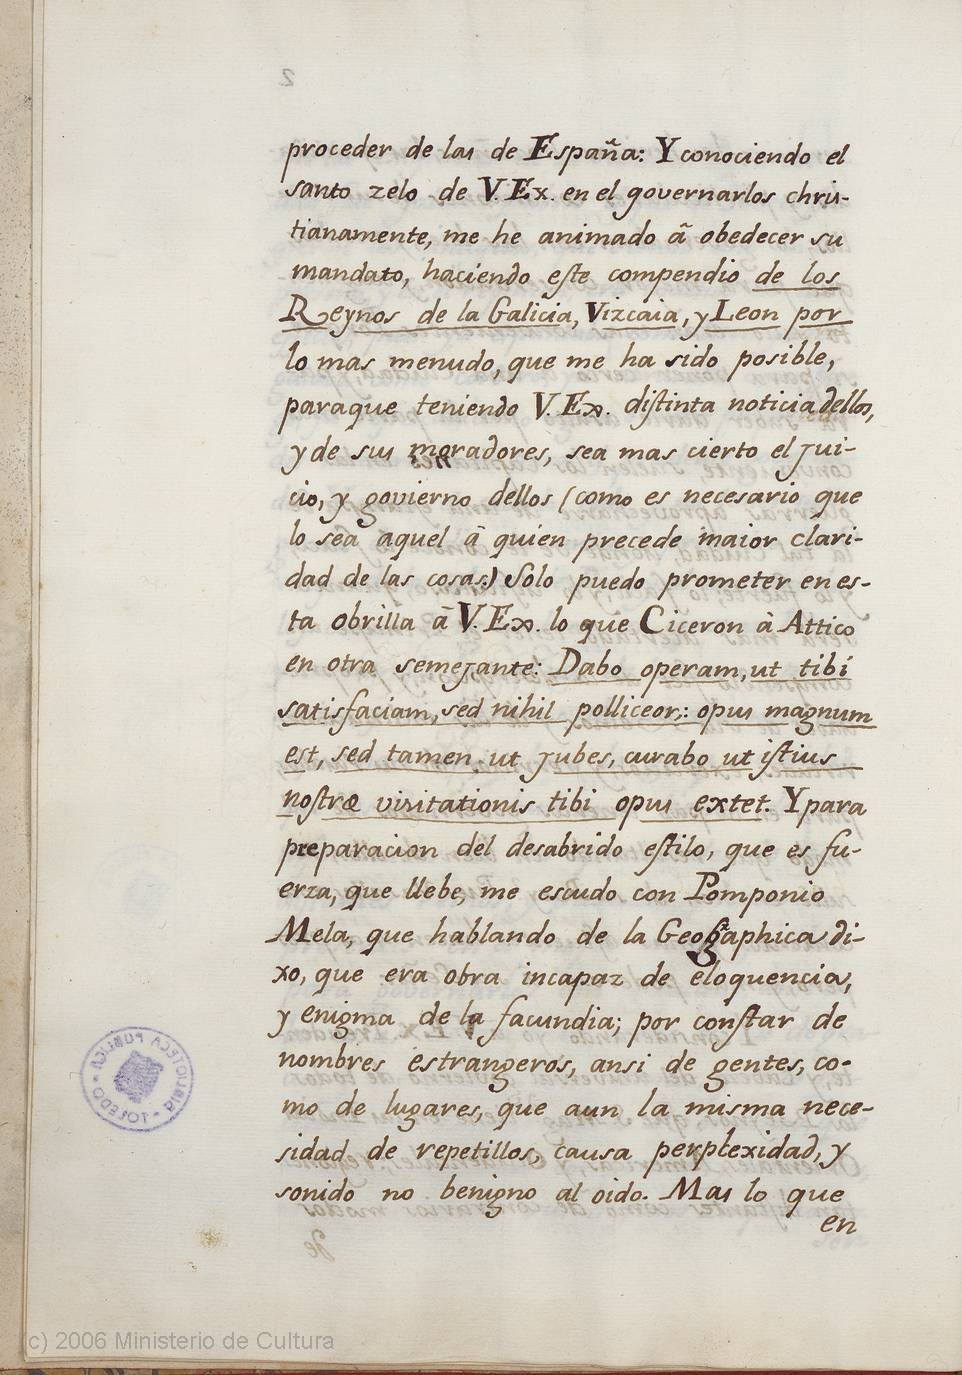 proceder de las de España: Y conociendo el
santo zelo de V. Ex. en el governarlos chris-
tianamente, me he animado â obedecer su
mandato, haciendo este compendio de los
Reynos de la Galicia, Vizcaia, y Leon por
lo mas menudo, que me ha sido posible,
paraque teniendo V. Ex. distinta noticia dellos,
y de sus moradores, sea mas cierto el jui-
cio, y govierno dellos (como es necesario que
lo sea aquel â quien precede maior clari-
dad de las cosas.) Solo puedo prometer en es-
ta obrilla â V. Ex. lo que Ciceron à Attico
en otra semejante: Dabo operam, ut tibi
satisfaciam, sed nihil polliceor;: opus magnum
est, sed tamen ut jubes, curabo ut istius
nostræ visitationis tibi opus extet. Y para
preparacion del desabrido estilo, que es fu-
erza, que llebe, me escudo con Pomponio
Mela, que hablando de la Geographica di-
xo, que era obra incapaz de eloquencia,
y enigma de la facundia; por constar de
nombres estrangeros, ansi de gentes, co-
mo de lugares, que aun la misma nece-
sidad de repetillos, causa perplexidad, y
sonido no benigno al oido. Mas lo que
en
BIBLIOTECA PUBLICA · TOLEDO ·
(c) 2006 Ministerio de Cultura